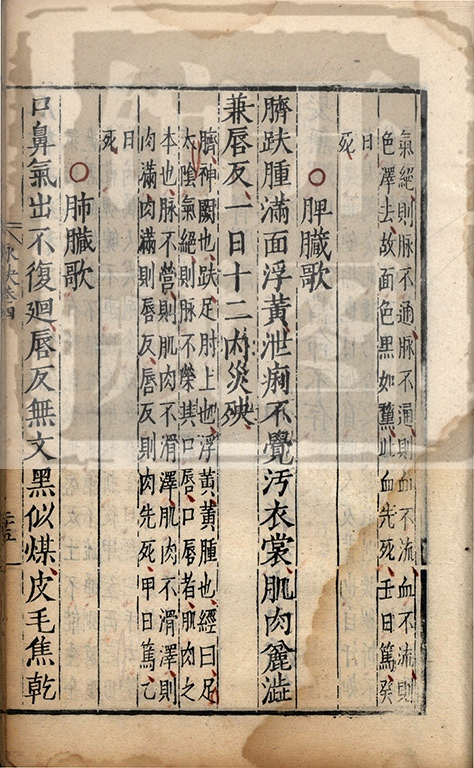 氣絕則脉不通脉不通則血不流血不流則
色澤去故面色黑如黧此血先死壬日篤癸
日
死
○脾臟歌
臍趺腫滿面浮黃泄痢不覺汚衣裳肌肉麄澁
兼唇反一日十二內災殃
臍神闕也趺足肘上也浮黃黃腫也經曰足
太陰氣絕則脉不榮其口唇口唇者肌肉之
本也脉不營則肌肉不滑澤肌肉不滑澤則
肉滿肉滿則唇反唇反則肉先死甲日篤乙
日
死
○肺臟歌
口鼻氣出不復廻唇反無文黑似煤皮毛焦乾